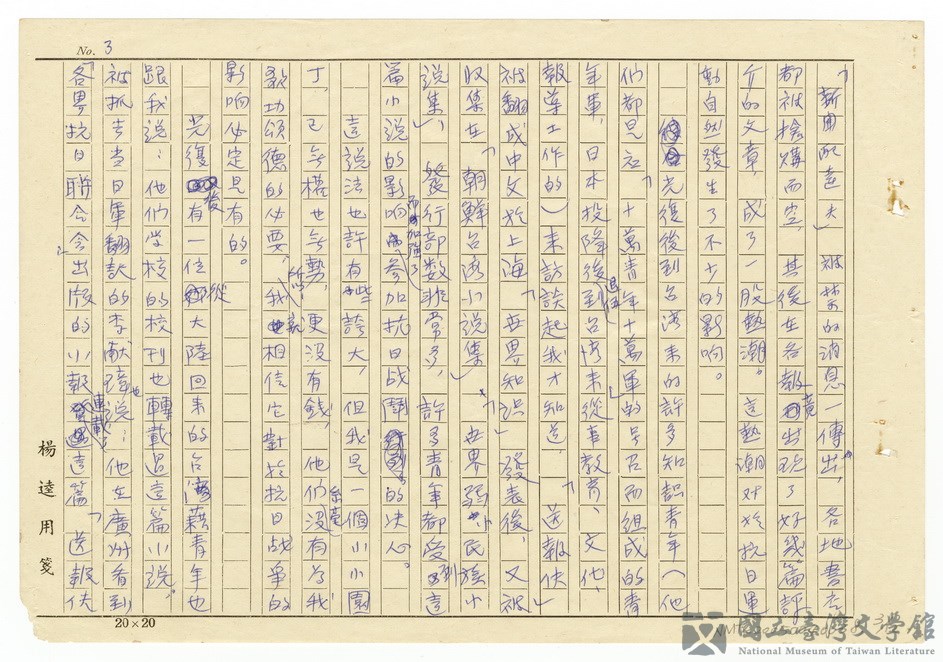 No. 3
「新聞配達夫」被禁的消息一傳出，各地書店
都被搶購而空，其後在各報竟出現了好幾篇評
介的文章，成了一股熱潮。這熱潮對於抗日運
動自然發生了不少的影响。
光復後到台湾来的許多知識青年（他
們都是in「十萬青年十萬軍的号召而組成的青
年軍，日本投降後退伍到台湾来從事教育、文化、
報導工作的）来訪談起我才知道，「送報伕」
被翻成中文於上海「世界知識」發表後，又被
収集在「朝鮮台湾小説集」「世界弱小民族小
説集」，發行部数非常多，許多青年都受到這
篇小説的影响而加強了参加抗日战鬪的决心。
這説法也許有些誇大，但我是一個小小園
丁，已無權也無勢，更没有錢，他們没有為我
歌功頌德的必要，所以我相信它對於抗日战爭的
影响必定是有的。
光復後有一位從大陸回来的台湾籍青年也
跟我説：他們学校的校刊也轉載過這篇小説。
被抓去当日軍翻訳的李献璋也説：他在廣州看到
「各界抗日聯合会」出版的小報連載過這篇「送報伕
楊逵用箋
20×20
國立臺灣文學館
National Museum of Taiwan Literature